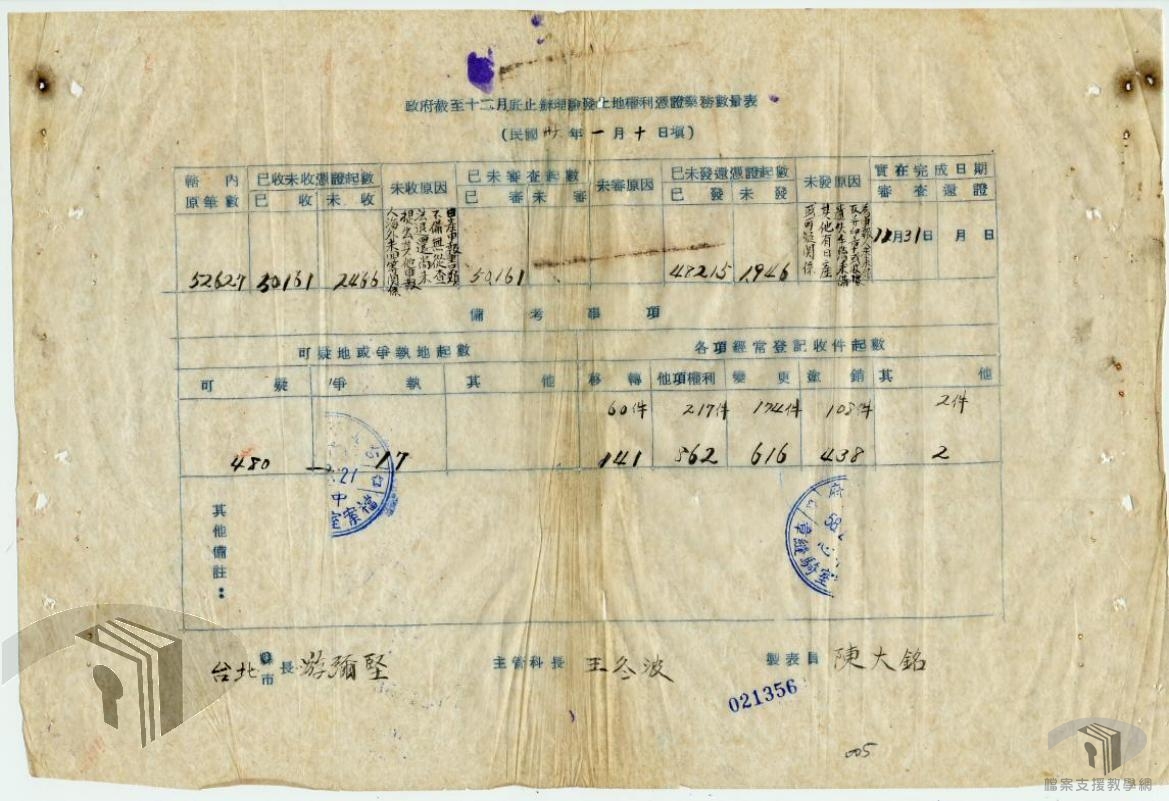 政府截至十二月底止辦理繳發土地權利憑證業務數量表
(民國卅六年一月十日填)
轄內原筆數 已收未收憑證起數 未收原因 已未審查起數 未審原因 已未發還憑證起數 未發原因 實在完成日期
已收 未收 已審 未審 已發 未發 審查 還證
52627 50161 2466 日產申報書類不備無從查 50161 48215 1946 其他有日產可疑關係 12月31日 月 日
備考事項
可疑地或爭執地起數 各項經常登記收件起數
可疑 爭執 其他 移轉 他項權利 變更 塗銷 其他
60件 217件 174件 108件 2件
480 17 141 862 616 438 2
其他備註:
台北縣市長 游彌堅 主管科長 王冬波 製表員 陳大銘
021356
005
檔案室
府
騎縫章
檔案支援教學網